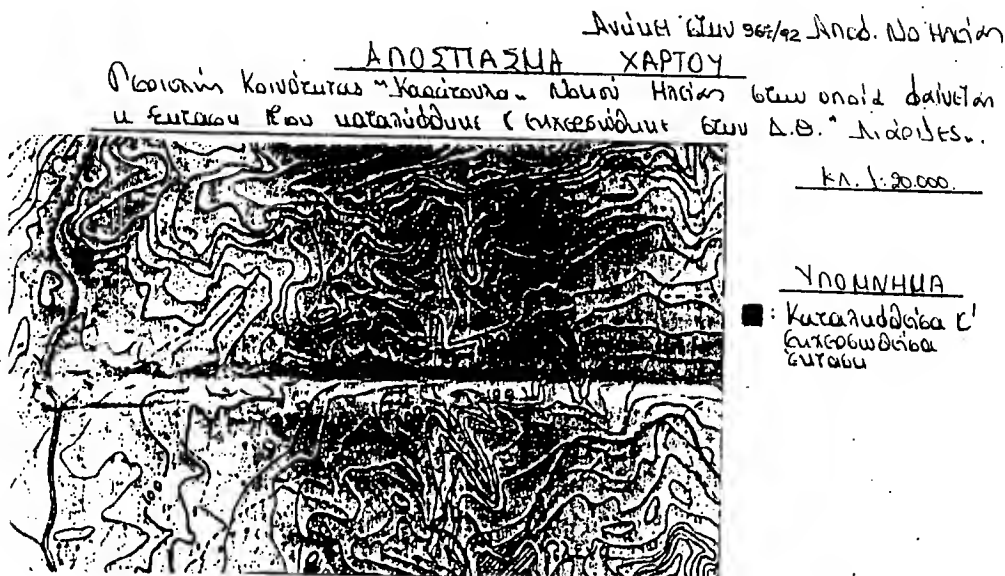 Ανήκει στην 967/92 Αποφ. Νο Ηλείας
ΑΠΟΣΠΑΣΜΑ ΧΑΡΤΟΥ
Περιοχής Κοινότητας "Καράτουλα" Νομού Ηλείας στην οποία φαίνεται
η έκταση που καταλήφθηκε & εκχερσώθηκε στην Δ.Θ. "Λιάριζες".
ΚΛ. 1:20.000.
ΥΠΟΜΝΗΜΑ
: Καταληφθείσα &
εκχερσωθείσα
έκταση
100